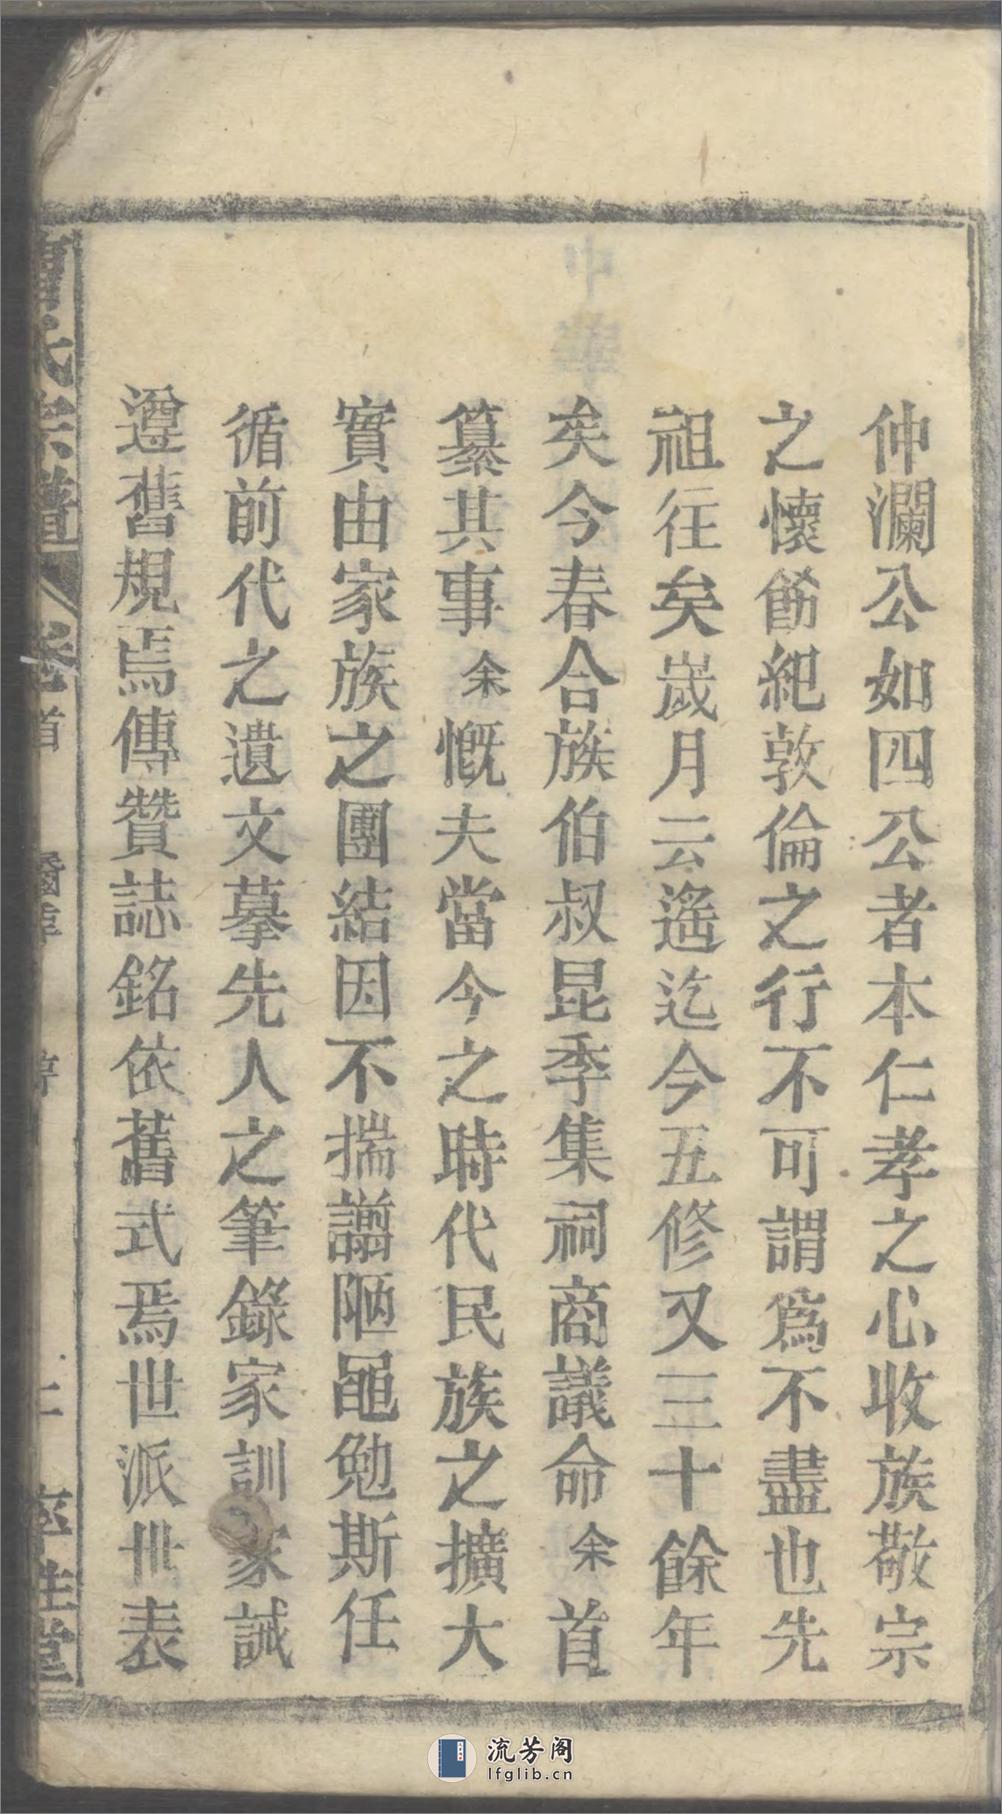 仲瀾公如四公者本仁孝之心收族敬宗
之懷飭紀敦倫之行不可謂爲不盡也先
祖往矣嵗月云遙迄今五修又三十餘年
矣今春合族伯叔昆季集祠商議命余首
纂其事余慨夫當今之時代民族之擴大
實由家族之團結因不揣譾陋黽勉斯任
循前代之遺文摹先人之筆錄家訓家誡
遵舊規焉傳贊誌銘依舊式焉世派世表
氏宗譜
卷首
堂
流芳阁
lfglib.cn